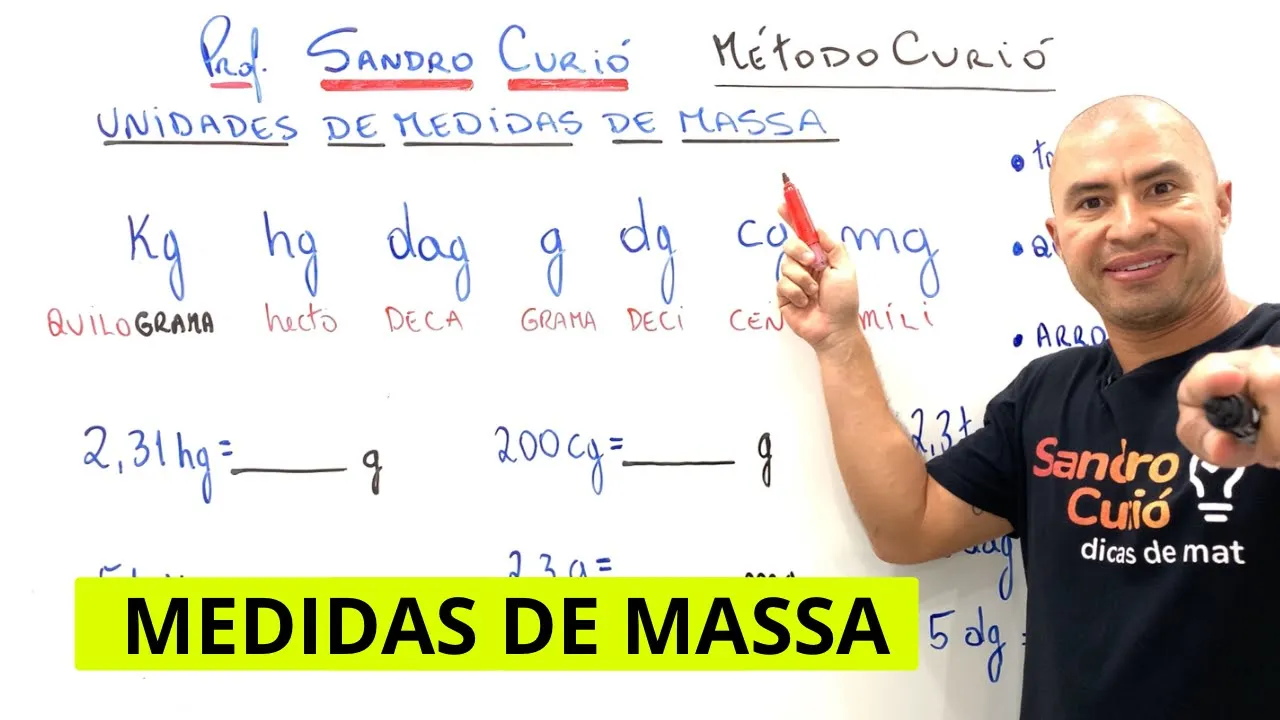 Prof. SANDRO CURIÓ MÉTODO CURIÓ
UNIDADES DE MEDIDAS DE MASSA
Kg hg dag g dg cg mg
QUILOGRAMA hecto DECA GRAMA DECI MILI
2,31 hg = ____ g
200 cg = ____ g
2,3 t
2,3 g =
5 dg =
MEDIDAS DE MASSA
Sandro
Curió
dicas de mat